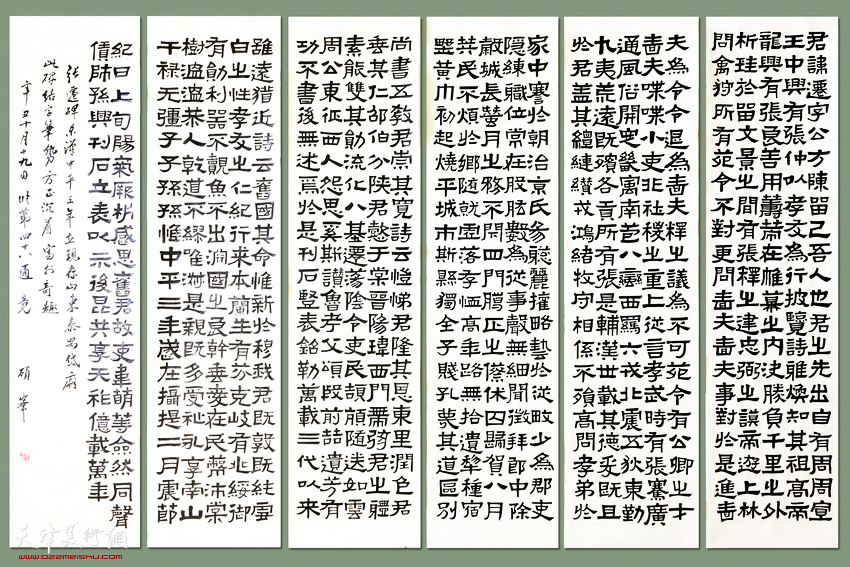 君諱遷字公方陳留己吾人也君之先出自有周周宣
王中興有張仲以孝友為行披覽詩雅煥知其祖高帝
龍興有張良善用籌策在帷幕之内決勝負千里之外
析珪於留文景之間有張釋之建忠弼之謨帝遊上林
問禽狩所有苑令不對更問嗇夫嗇夫事對於是進嗇
夫為令令退為嗇夫釋之議為不可苑令有公卿之才
嗇夫喋喋小吏非社稷之重上從言孝武時有張騫廣
通風俗開定畿寓南苞八蠻西羈六戎北震五狄東勤
九夷荒遠既殯各貢所有張是輔漢世載其德爰既且
於君蓋其纏縺纘戎鴻緒牧守相係不殞高問孝弟於
家中謇於朝治京氏易聰麗權略藝於從畋少為郡吏
隱練職位常在股肱數為從事聲無細聞徵拜郎中除
穀城長蠶月之務不閉四門臘正之僚休囚歸賀八月
筭民不煩於鄉隨就虛落存恤高年路無拾遺犁種宿
野黃巾初起燒平城市斯縣獨全子賤孔蔑其道區別
尚書五教君崇其寬詩云愷悌君隆其恩東里潤色君
垂其仁邵伯分陝君懿于棠晉陽珮瑋西門帶弦君之體
素能雙其勛流化八基遷蕩陰令吏民頡頏隨送如雲
周公東征西人怨思奚斯讚魯考父頌殷前喆遺芳有
功不書後無述焉於是刊石竪表銘勒萬載三代以來
雖遠猶近詩云舊國其命惟新於穆我君既敦既純雪
白之性孝友之仁紀行來本蘭生有芬克岐有兆綏御
有勛利器不覿魚不出淵國之良幹垂愛在民蔽沛棠
樹溫溫恭人乾道不繆唯淑是親既多受祉永享南山
干祿無疆子子孫孫惟中平三年歲在攝提二月震節
紀日上旬陽氣厥析感思舊君故吏韋萌等僉然同聲
賃師孫興刊石立表以示後昆共享天祚億載萬年
張遷碑系漢中平三年立現存山東泰安岱廟
此碑結字筆勢方正沉着富於奇趣
辛丑十月十九日臨第四十六通竟 碩峯
天津美術網
www.022meishu.com